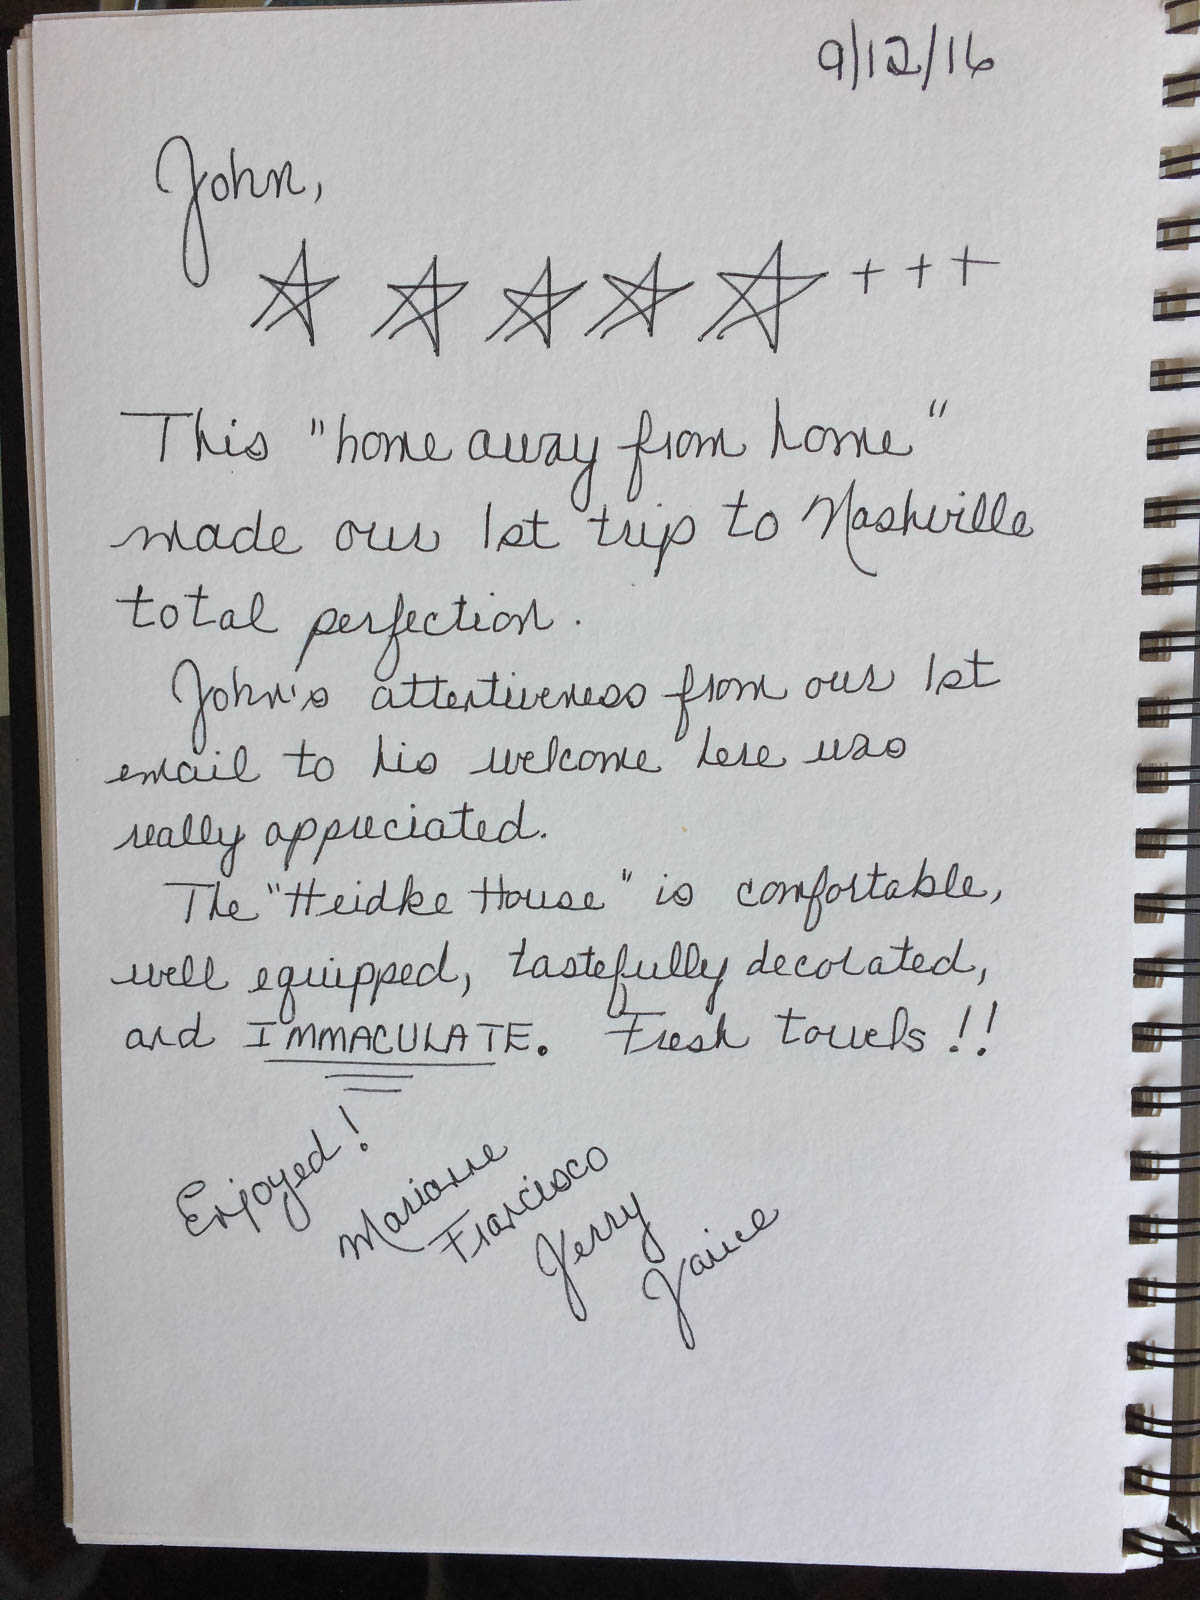 9/12/16
John,
☆ ☆ ☆ ☆ ☆ + + +
This "home away from home"
made our 1st trip to Nashville
total perfection.
John's attentiveness from our 1st
email to his welcome here was
really appreciated.
The "Heidke House" is comfortable,
well equipped, tastefully decorated,
and IMMACULATE. Fresh towels!!
Enjoyed!
Marianne
Francisco
Jerry
Janice